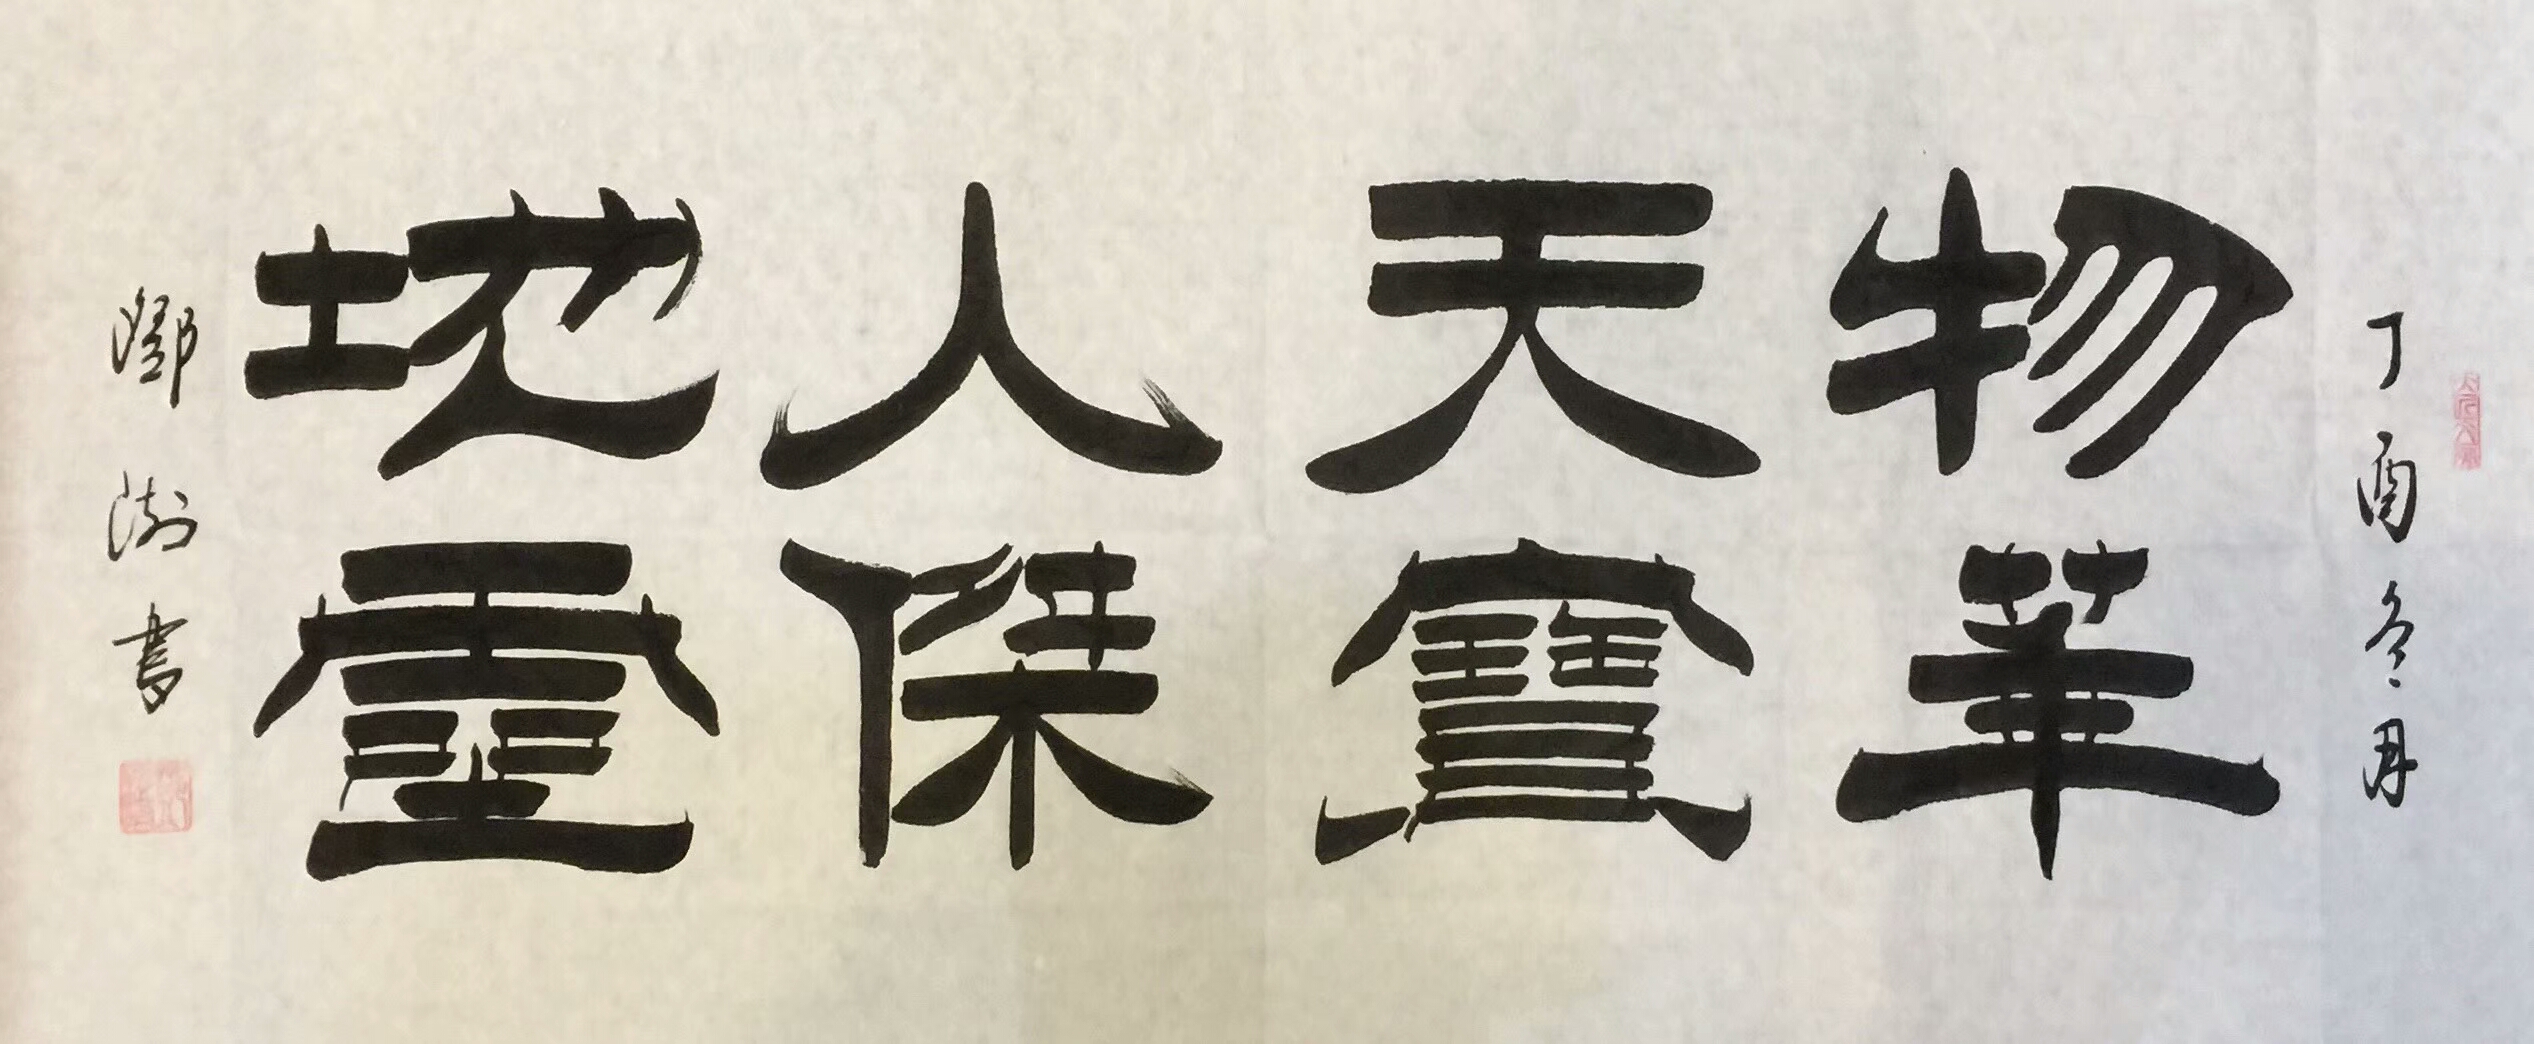 丁酉冬月
物華
天寶
人傑
地靈
鄧澍書